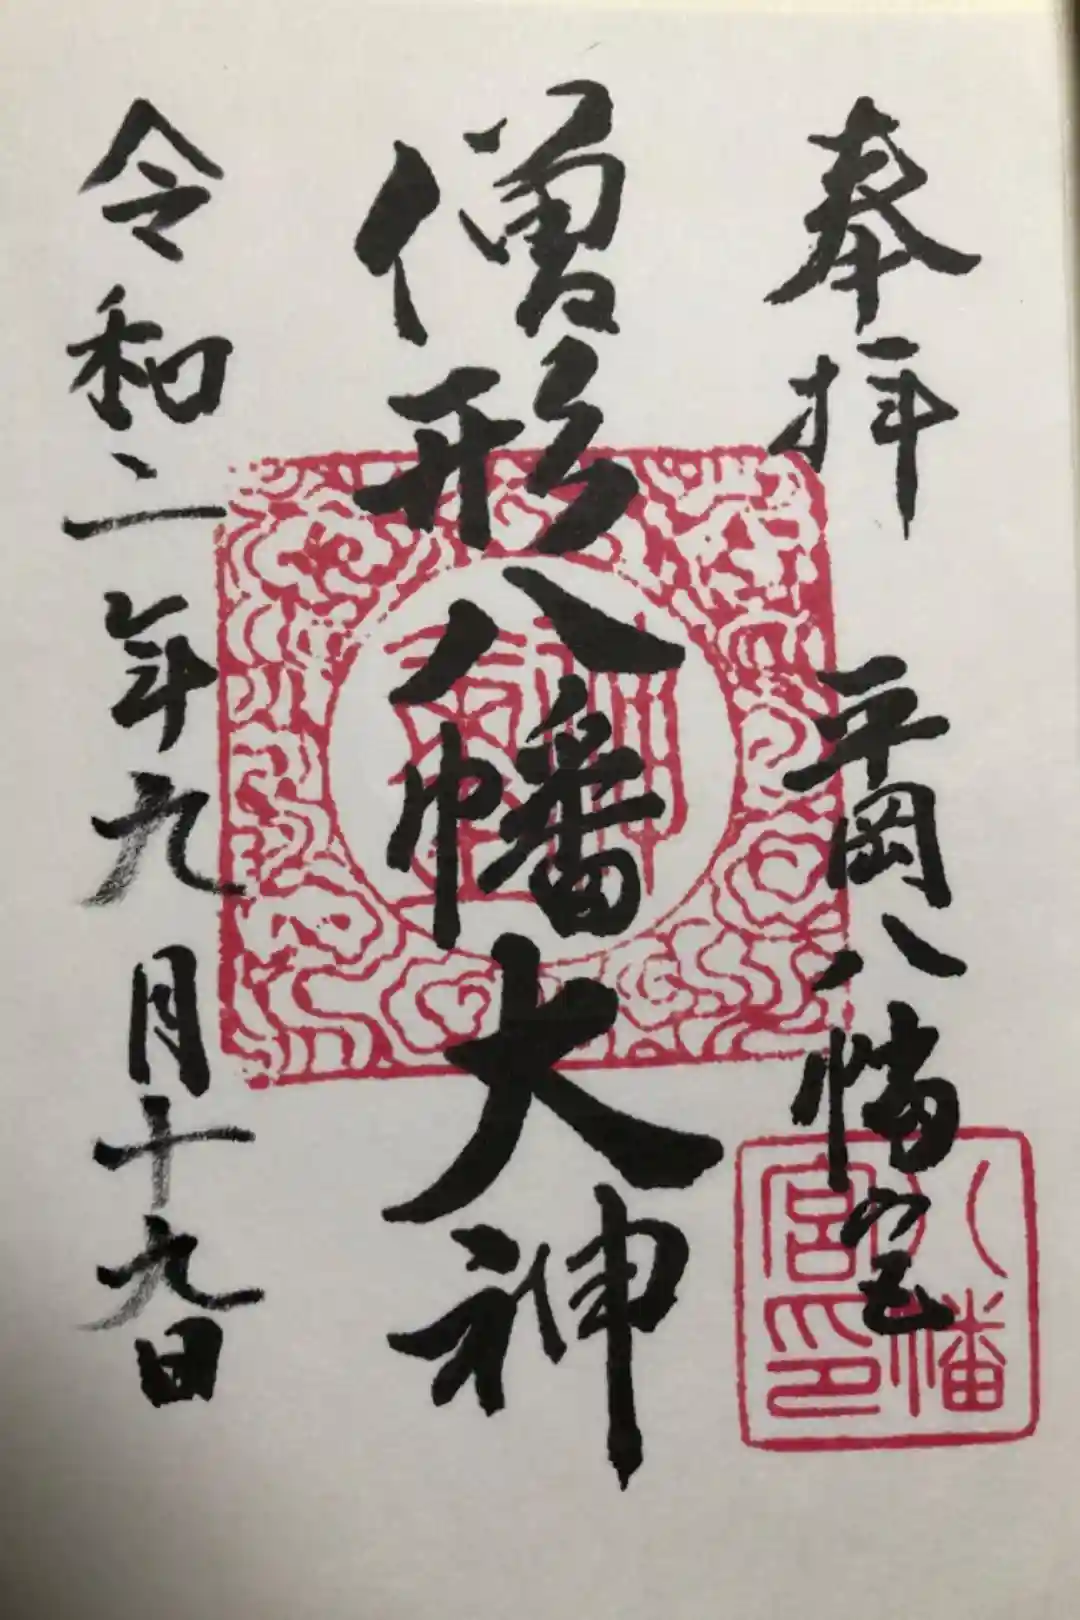 奉拝 平岡八幡宮
僧形八幡大神
令和二年九月十九日
八幡
宮印